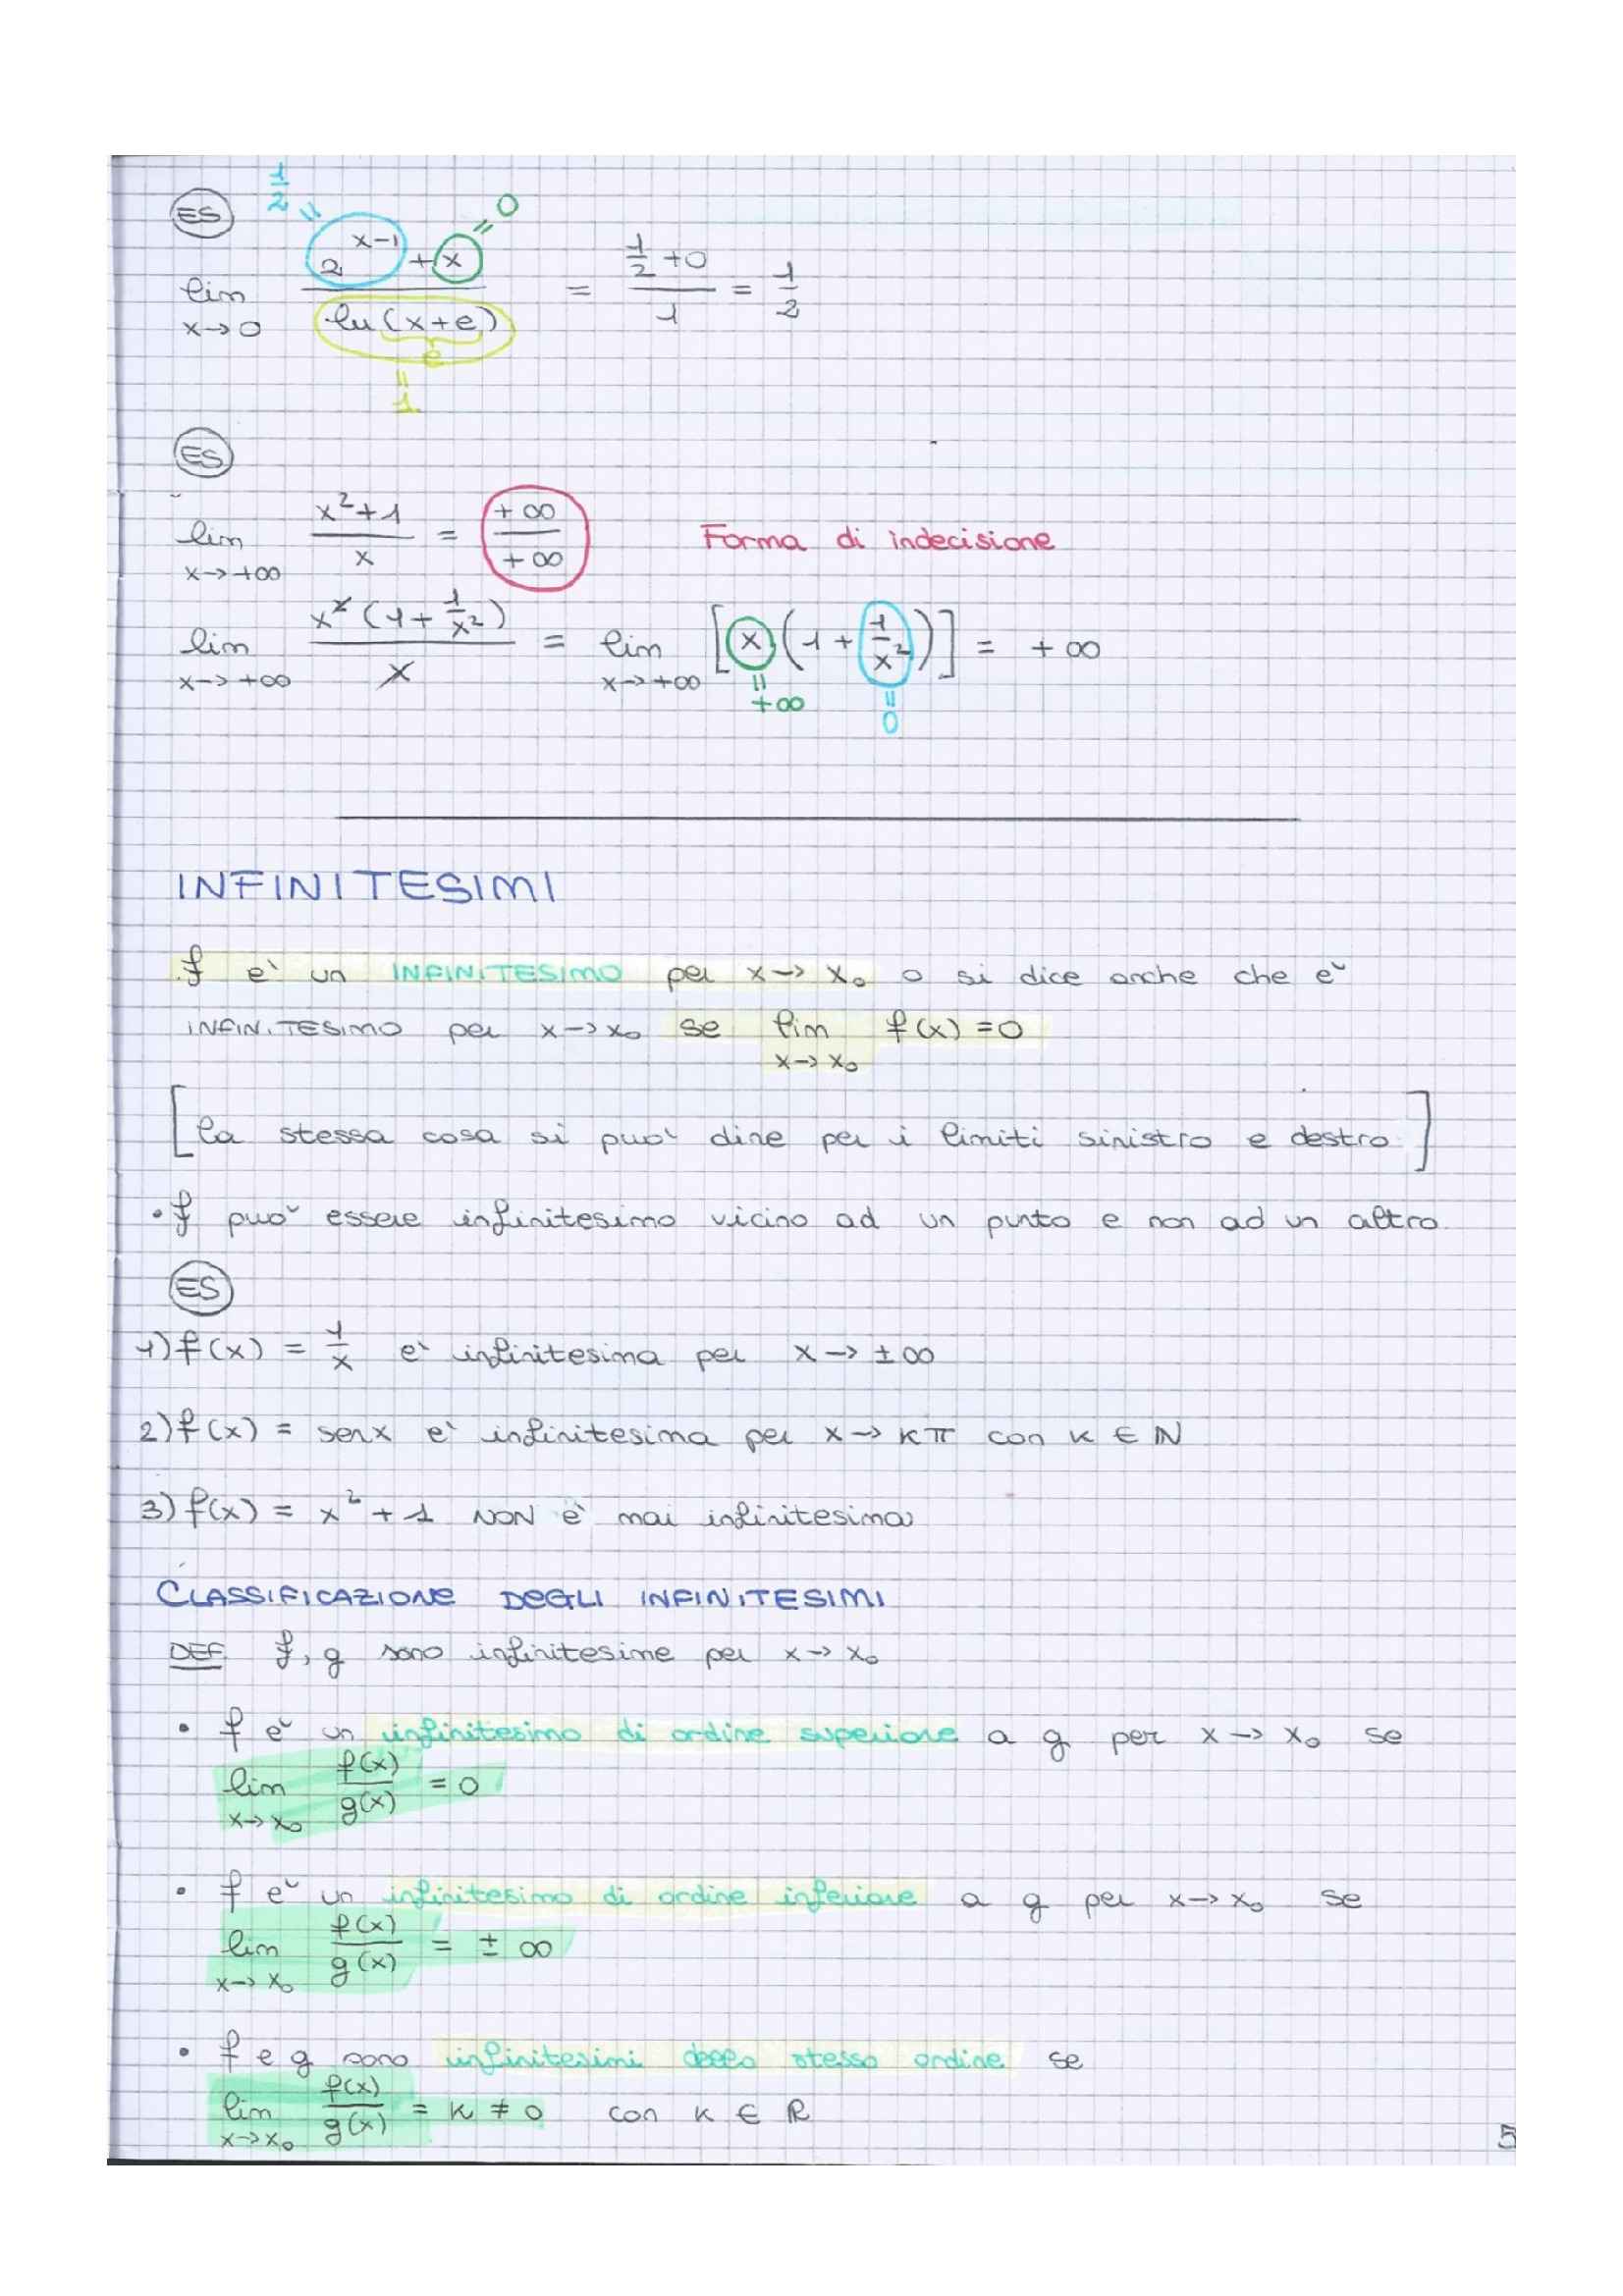 ES
1/2 = 2^(x-1) + x = 0
lim x→0 (2^(x-1) + x) / ln(x+e) = (1/2 + 0) / 1 = 1/2
e
= 1
ES
lim x→+∞ (x²+1) / x = +∞ / +∞ Forma di indecisione
lim x→+∞ x²(1 + 1/x²) / x = lim x→+∞ [x(1 + 1/x²)] = +∞
= +∞ = 0
INFINITESIMI
f e' un INFINITESIMO per x→x₀ o si dice anche che e'
INFINITESIMO per x→x₀ se lim x→x₀ f(x) = 0
[la stessa cosa si puo' dire per i limiti sinistro e destro]
• f puo' essere infinitesimo vicino ad un punto e non ad un altro.
ES
1) f(x) = 1/x e' infinitesima per x→±∞
2) f(x) = senx e' infinitesima per x→kπ con k ∈ ℕ
3) f(x) = x² + 1 NON e' mai infinitesima
CLASSIFICAZIONE DEGLI INFINITESIMI
DEF. f, g sono infinitesime per x→x₀
• f e' un infinitesimo di ordine superiore a g per x→x₀ se
lim x→x₀ f(x)/g(x) = 0
• f e' un infinitesimo di ordine inferiore a g per x→x₀ se
lim x→x₀ f(x)/g(x) = ±∞
• f e g sono infinitesimi dello stesso ordine se
lim x→x₀ f(x)/g(x) = k ≠ 0 con k ∈ ℝ
5